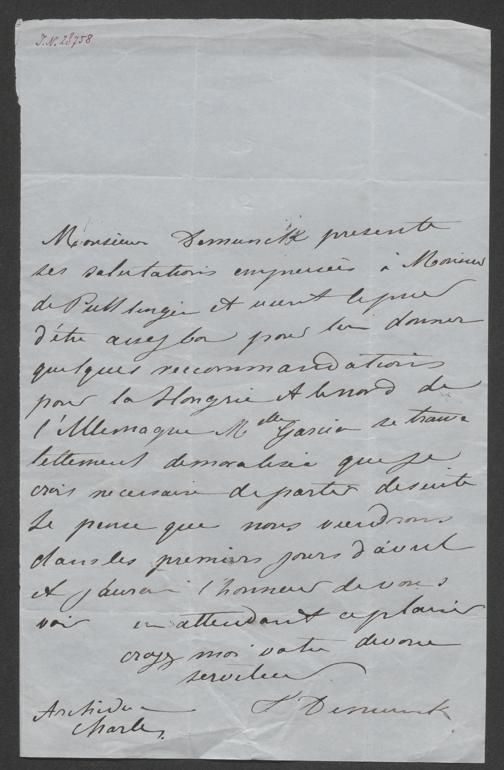 I.N. 28758
Monsieur Demunck presente
ses salutations empressées à Monsieur
de Puttlingen et vient le prier
d'être assez bon pour lui donner
quelques reccommandations
pour la Hongrie et le nord de
l'Allemagne Melle Garcia se trouve
tellement demoralisée que je
crois necessaire de partir desuite
Je pense que nous viendrons
dans les premiers jours d'avril
et j'aurai l'honneur de vous
voir en attendant ce plaisir
croyez moi votre devoué
serviteur
Archiduc
Charles.
Demunck